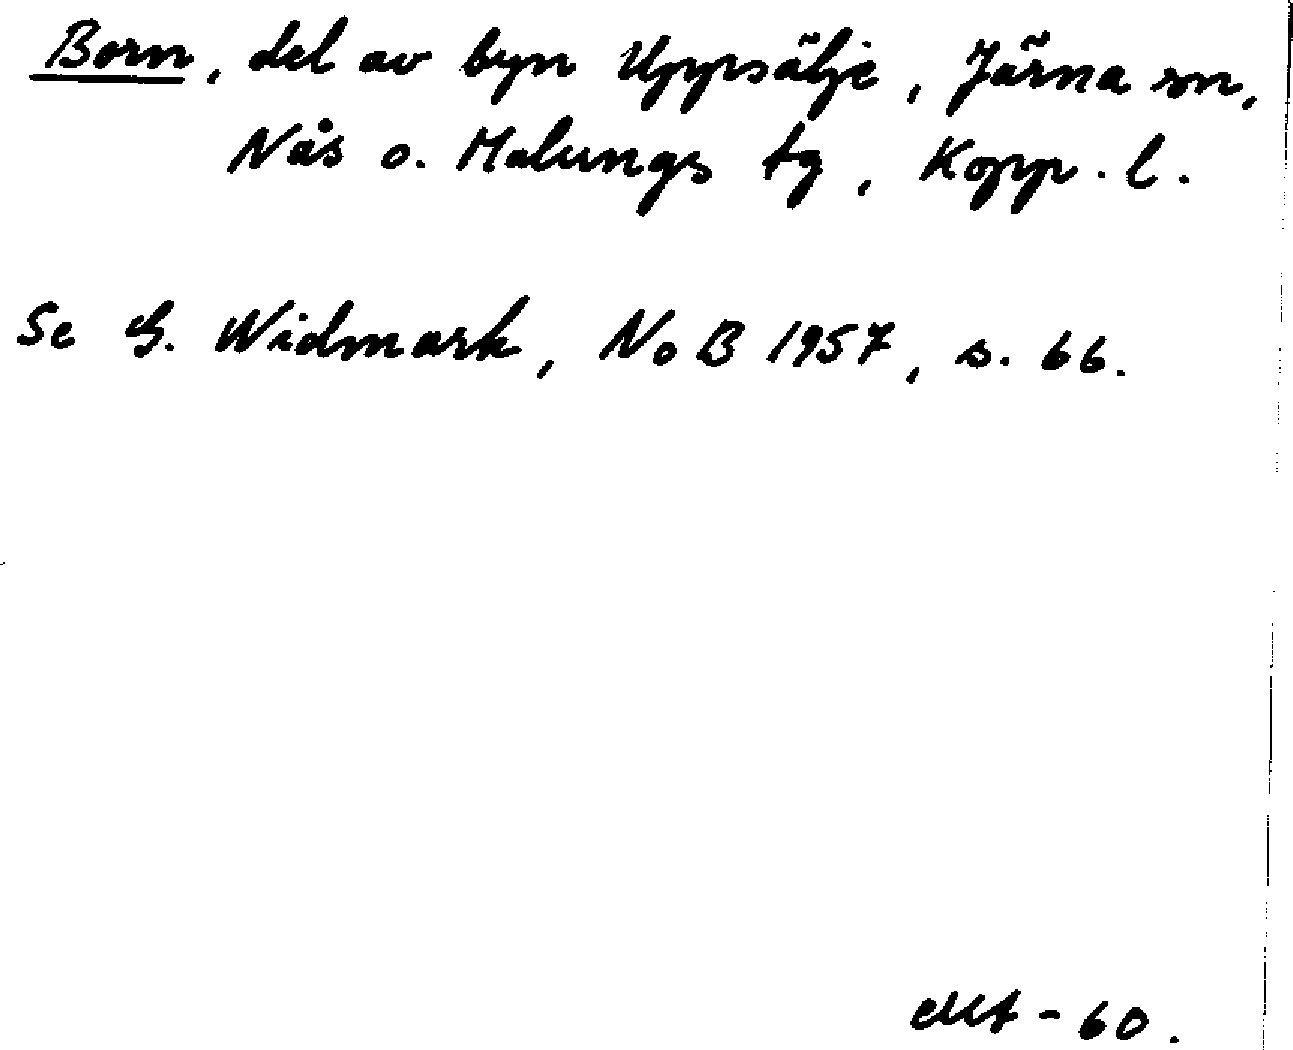 Born, del av byn Uppsälje, Järna sn,
Nås o. Malungs tg, Kopp. l.
Se G. Widmark, NoB 1957, s. 66.
-60.